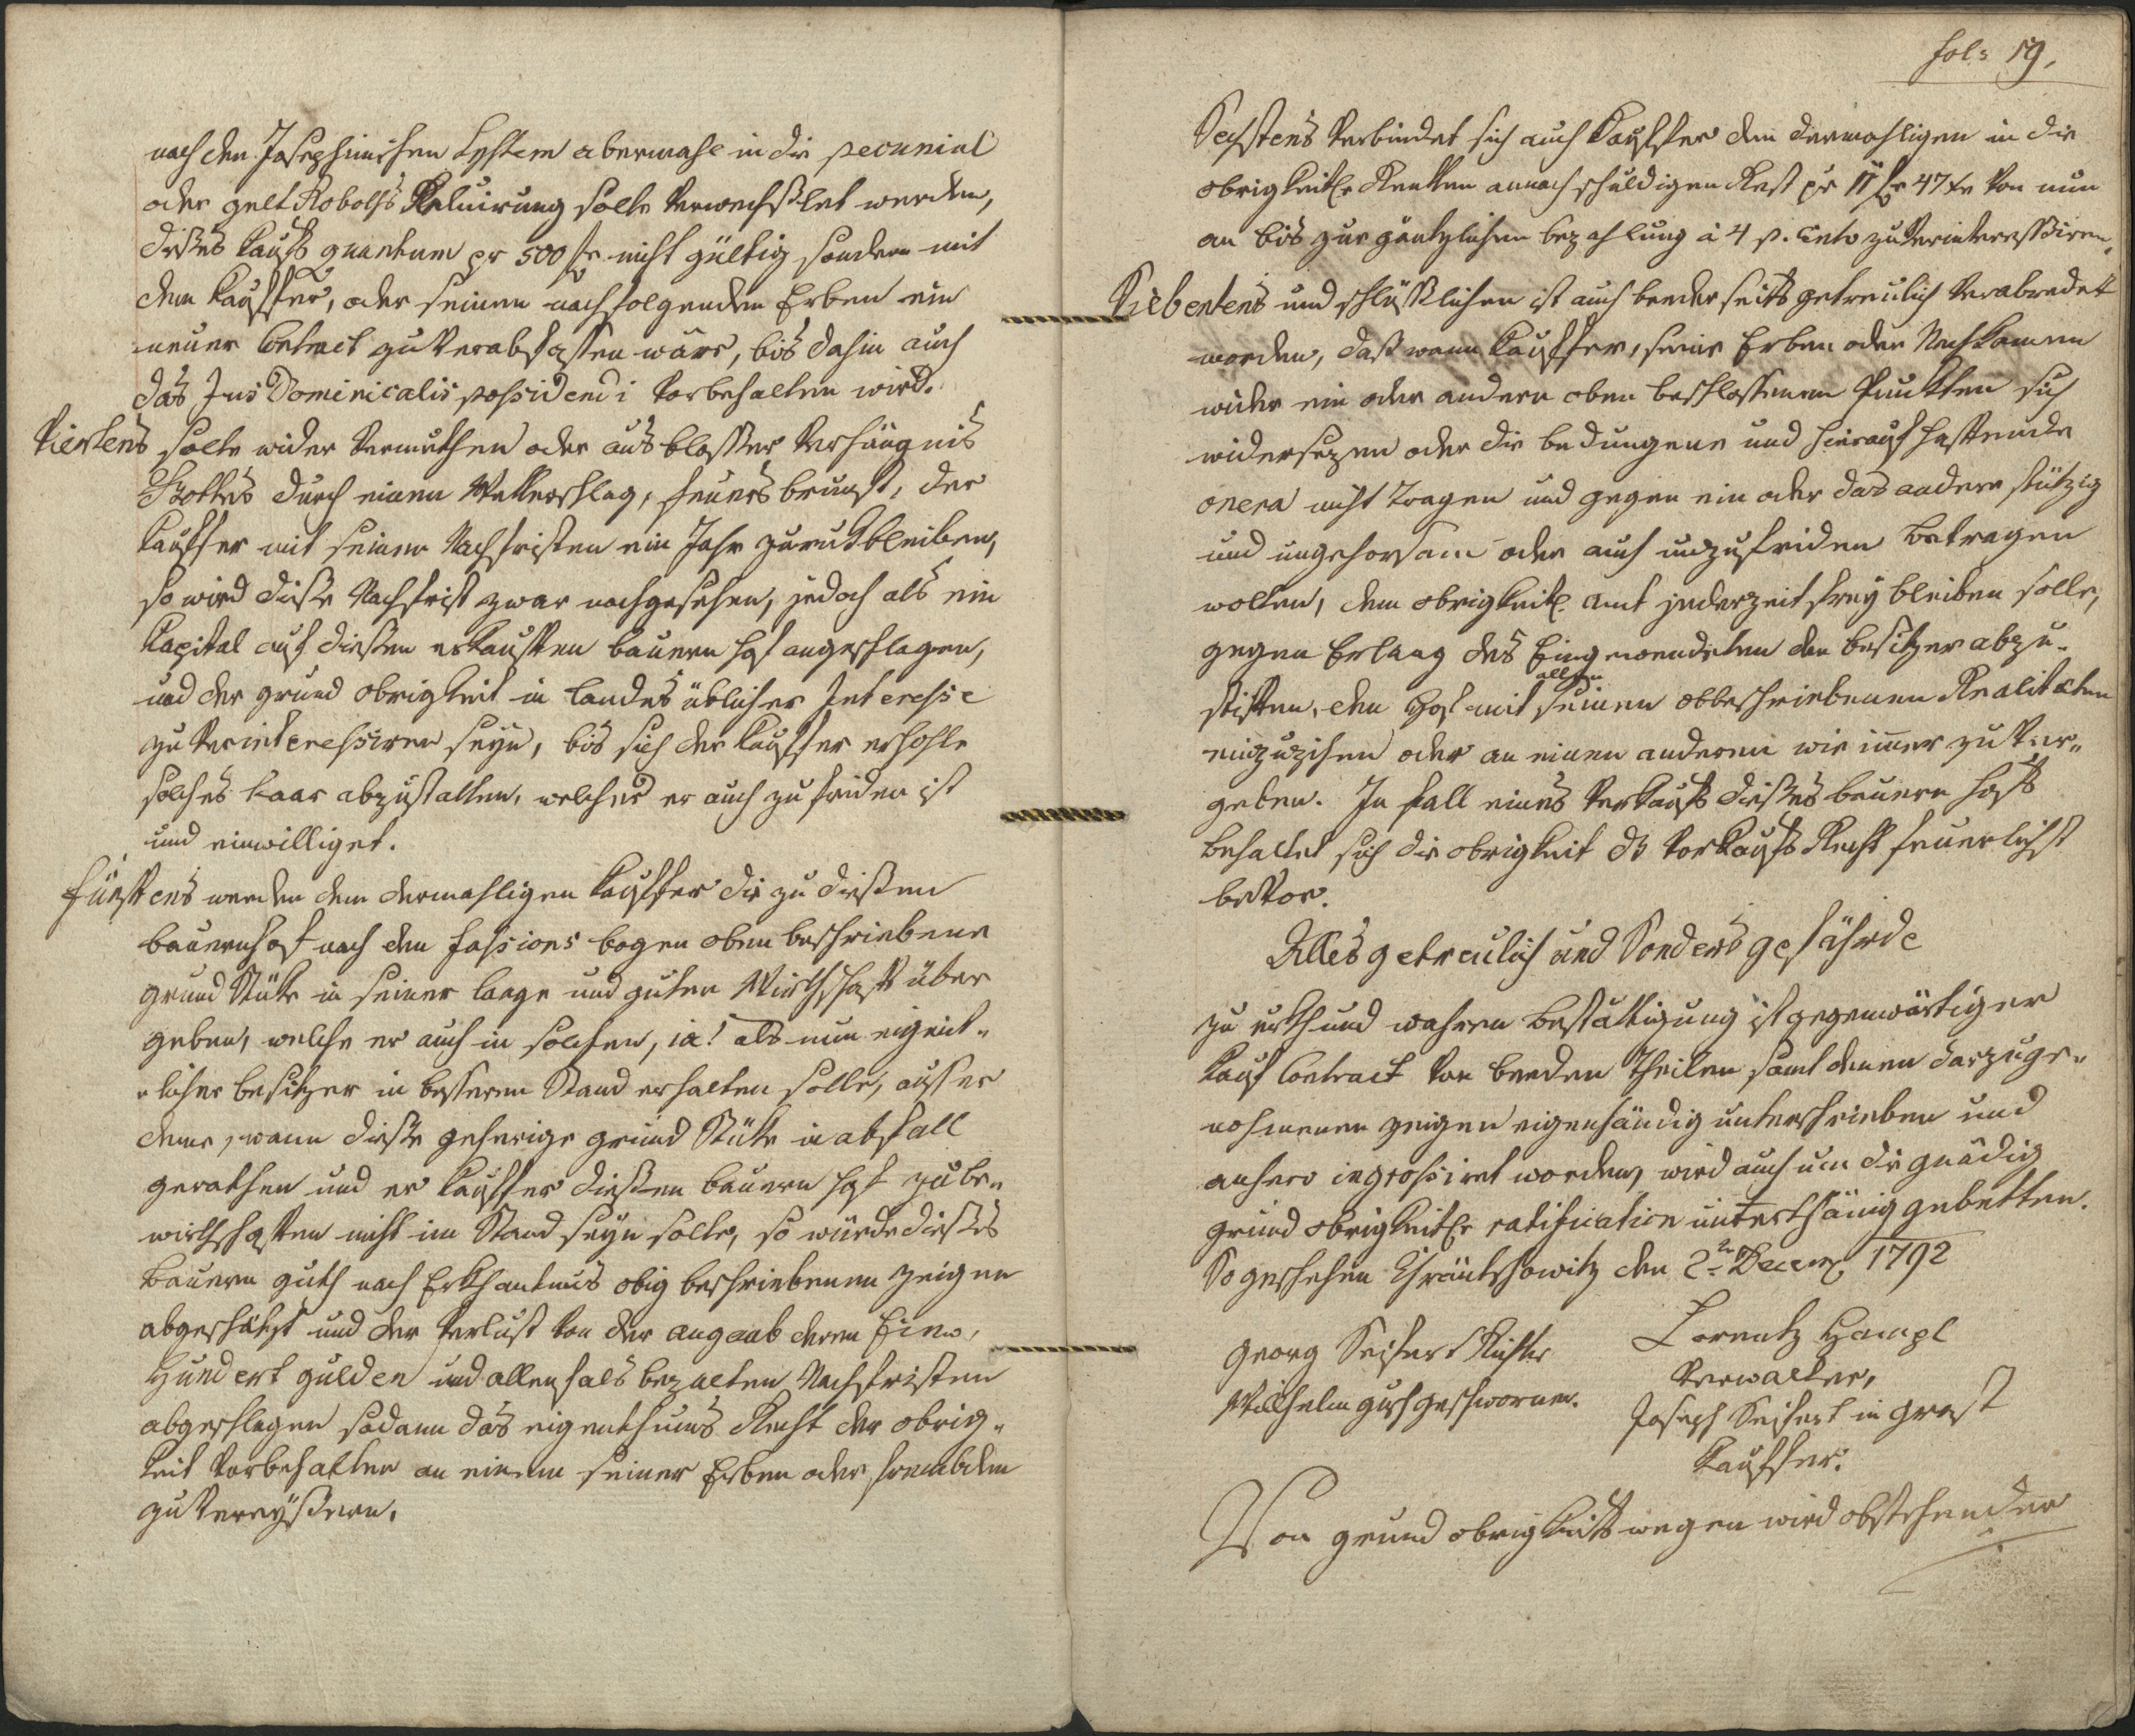 nach den Josephinischen System abermahl in die pecunial
oder gelt Roboths Reluirung solte Verwechßlet werden,
dißes Kaufs quantum pr 500 fr nicht gültig sondern mit
dem Kauffer, oder seinen nachfolgenden Erben ein
neuer Contract zu Verabfassen wäre, bis dahin auch
das Jus Dominicalis possidendi Vorbehalten wird.
Viertens solte wider Vermuthen oder aus blosser Verhängnis
Gottes durch einen Wetterschlag, feuers brunst, der
Kauffer mit seinen Nachfristen ein Jahr zuruk bleiben,
so wird dieße Nachfrist zwar nachgesehen, jedoch als ein
Kapital auf dießen erkauften bauern hof angeschlagen,
und der grund obrigkeit in landes üblicher Interesse
zu Verinteressiren seyn, bis sich der Kauffer erhohle
solches baar abzustatten, welches er auch zu friden ist
und einwilliget.
Fünftens werden dem dermahligen Kauffer die zu dießen
bauernhof nach den fassions bogen oben beschriebene
grund Stüke in seiner lage und guten Wirthschaft über
geben, welche er auch in solchen, ia! als nun eigent-
-licher besitzer in besseren Stand erhalten solle, ausser
deme, wann dieße gehörige grund Stüke in abfall
gerathen und er Kauffer dießen bauern hof zu be-
wirthschaften nicht im Stand seyn solte, so würde dießes
bauern guth nach Erkhantnus obig beschriebenen zeigen
abgeschätzt und der Verlust Von der angaab deren Ein-
Hundert gulden und allenfals bezalten Nachfristen
abgeschlagen sodann das eigenthums Recht der obrig-
keit Vorbehalten an einem seiner Erben oder frembden
zu Vereyßern.
fol: 19.
Sechstens Verbindet sich auch Kauffer den dermahligen in die
obrigkeitle Rentten annoch schuldigen Rest pr 11 fr 47 xr Von nun
an bis zur gäntzlichen bezahlung à 4 p. Cento zu Verinteressiren.
Siebentens und schlüßlichen ist auch beederseits getreulich Verabredet
worden, daß wann Kauffer, seine Erben oder Nachkomen
wider ein oder andern oben beschlossenen Puntten sich
widersezen oder die bedungene und hierauf haftende
onera nicht Tragen und gegen ein oder das andere stützig
und ungehorsam oder auch unzufriden betragen
wolten, dem obrigkeitl Amt jederzeit frey bleiben solle,
gegen Erlaag des Eingewendeten den besitzer abzu-
stiften, den Hof mit allen seinen obbeschriebenen Realitæten
einzuzihen oder an einen anderen wie imer zu Ver-
geben. In fall eines Verkaufs dießes bauern hofs
behaltet sich die obrigkeit ds Vorkaufs Recht feuerlichst
beVor.
Alles getreulich und Sonders gefährde
zu urkhund wahren bestättigung ist gegenwärtiger
Kauf Contract Von beeden Theilen samt denen darzuge-
nohmenen zeigen eigenhändig unterschrieben und
anhero ingrossiret worden, wird auch um die gnädig
grund obrigkeitle ratification unterthänig gebetten.
So geschehen Chräntschowitz den 2n Decem 1792
Georg Seifert Richter
Wilhelm gesch geschworner.
Lorentz Hampl
Verwalter,
Joseph Seifert in grast
Kauffer.
Von grund obrigkeits wegen wird obstehender